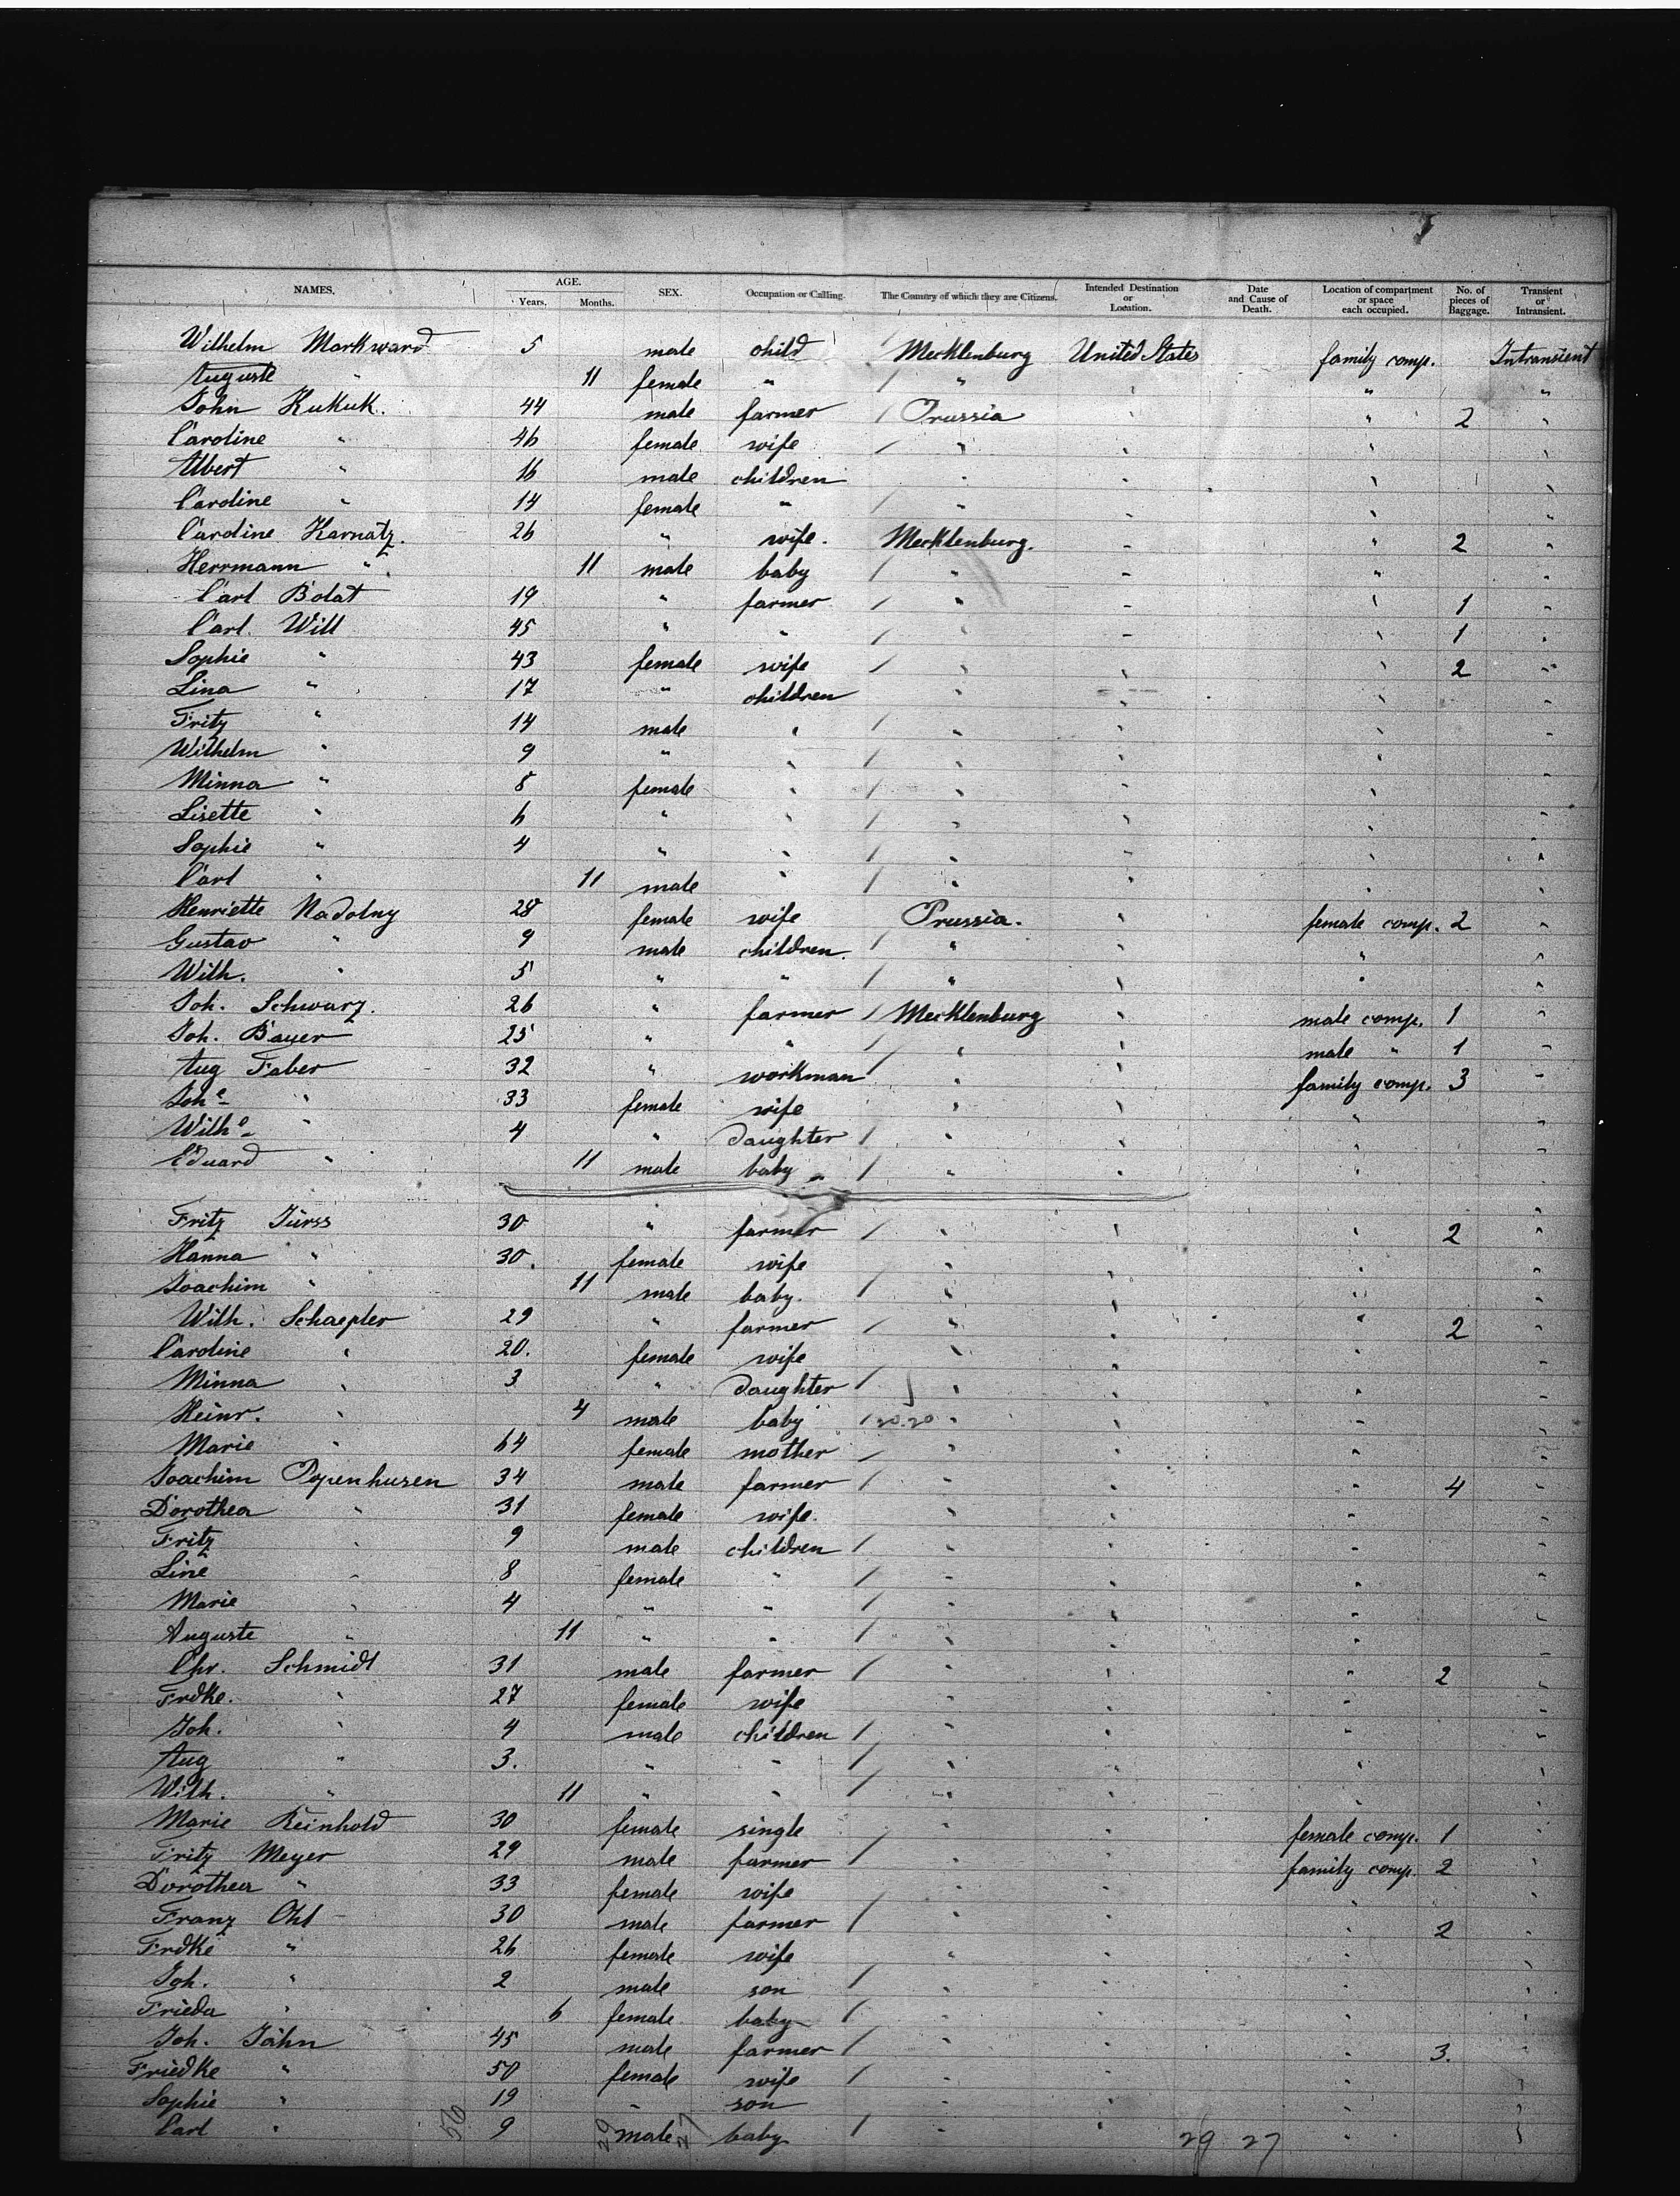 NAMES. AGE. Years. Months. SEX. Occupation or Calling. The Country of which they are Citizens. Intended Destination or Location. Date and Cause of Death. Location of compartment or space each occupied. No. of pieces of Baggage. Transient or Intransient.
Wilhelm Markward 5 male child Mecklenburg United States family comp. Intransient
Auguste " 11 female " / " " " "
John Kukuk. 44 male farmer / Prussia " " 2 "
Caroline " 46 female wife / " " " "
Albert " 16 male children " " " "
Caroline " 14 female " / " " " "
Caroline Karnatz. 26 " wife. Mecklenburg. " " 2 "
Herrmann " 11 male baby / " " " "
Carl Bolat 19 " farmer / " " " 1 "
Carl. Will 45 " " / " " " 1 "
Sophie " 43 female wife / " " " 2 "
Lina " 17 " children " " " "
Fritz " 14 male " / " " " "
Wilhelm " 9 " " / " " " "
Minna " 8 female " / " " " "
Lisette " 6 " " / " " " "
Sophie " 4 " " / " " " "
Carl " 11 male " / " " " "
Henriette Nadolny 28 female wife Prussia. " female comp. 2 "
Gustav " 9 male children. / " " " "
Wilh. " 5 " " / " " " "
Joh. Schwarz. 26 " farmer / Mecklenburg " male comp. 1 "
Joh. Bayer 25 " " / " " male " 1 "
Aug Faber 32 " workman / " " family comp. 3 "
Johe " 33 female wife " " " "
Wilhe " 4 " daughter / " " " "
Eduard " 11 male baby / " " " "
Fritz Jürss 30 " farmer / " " " 2 "
Hanna " 30. female wife " " " "
Joachim " 11 male baby. / " " " "
Wilh. Schaepler 29 " farmer / " " " 2 "
Caroline " 20. female wife " " " "
Minna " 3 " daughter / " " " "
Heinr. " 4 male baby / 20.20 " " " "
Marie " 64 female mother / " " " "
Joachim Popenhusen 34 male farmer / " " " 4 "
Dorothea " 31 female wife. " " " "
Fritz " 9 male children / " " " "
Line " 8 female " / " " " "
Marie " 4 " " / " " " "
Auguste " 11 " " / " " " "
Chr. Schmidt 31 male farmer / " " " 2 "
Frdke. " 27 female wife " " " "
Joh. " 4 male children / " " " "
Aug " 3. " " / " " " "
Wilh. " 11 " " / " " " "
Marie Reinhold 30 female single " " female comp. 1 "
Fritz Meyer 29 male farmer / " " family comp. 2 "
Dorothea " 33 female wife " " " "
Franz Ohl 30 male farmer / " " " 2 "
Frdke " 26 female wife " " " "
Joh. " 2 male son / " " " "
Frieda " 6 female baby / " " " "
Joh. Jahn 45 male farmer / " " " 3. "
Friedke " 50 female wife / " " " "
Sophie " 19 " son " " " "
Carl " 9 male baby / " " " "
56 29 27 29 27